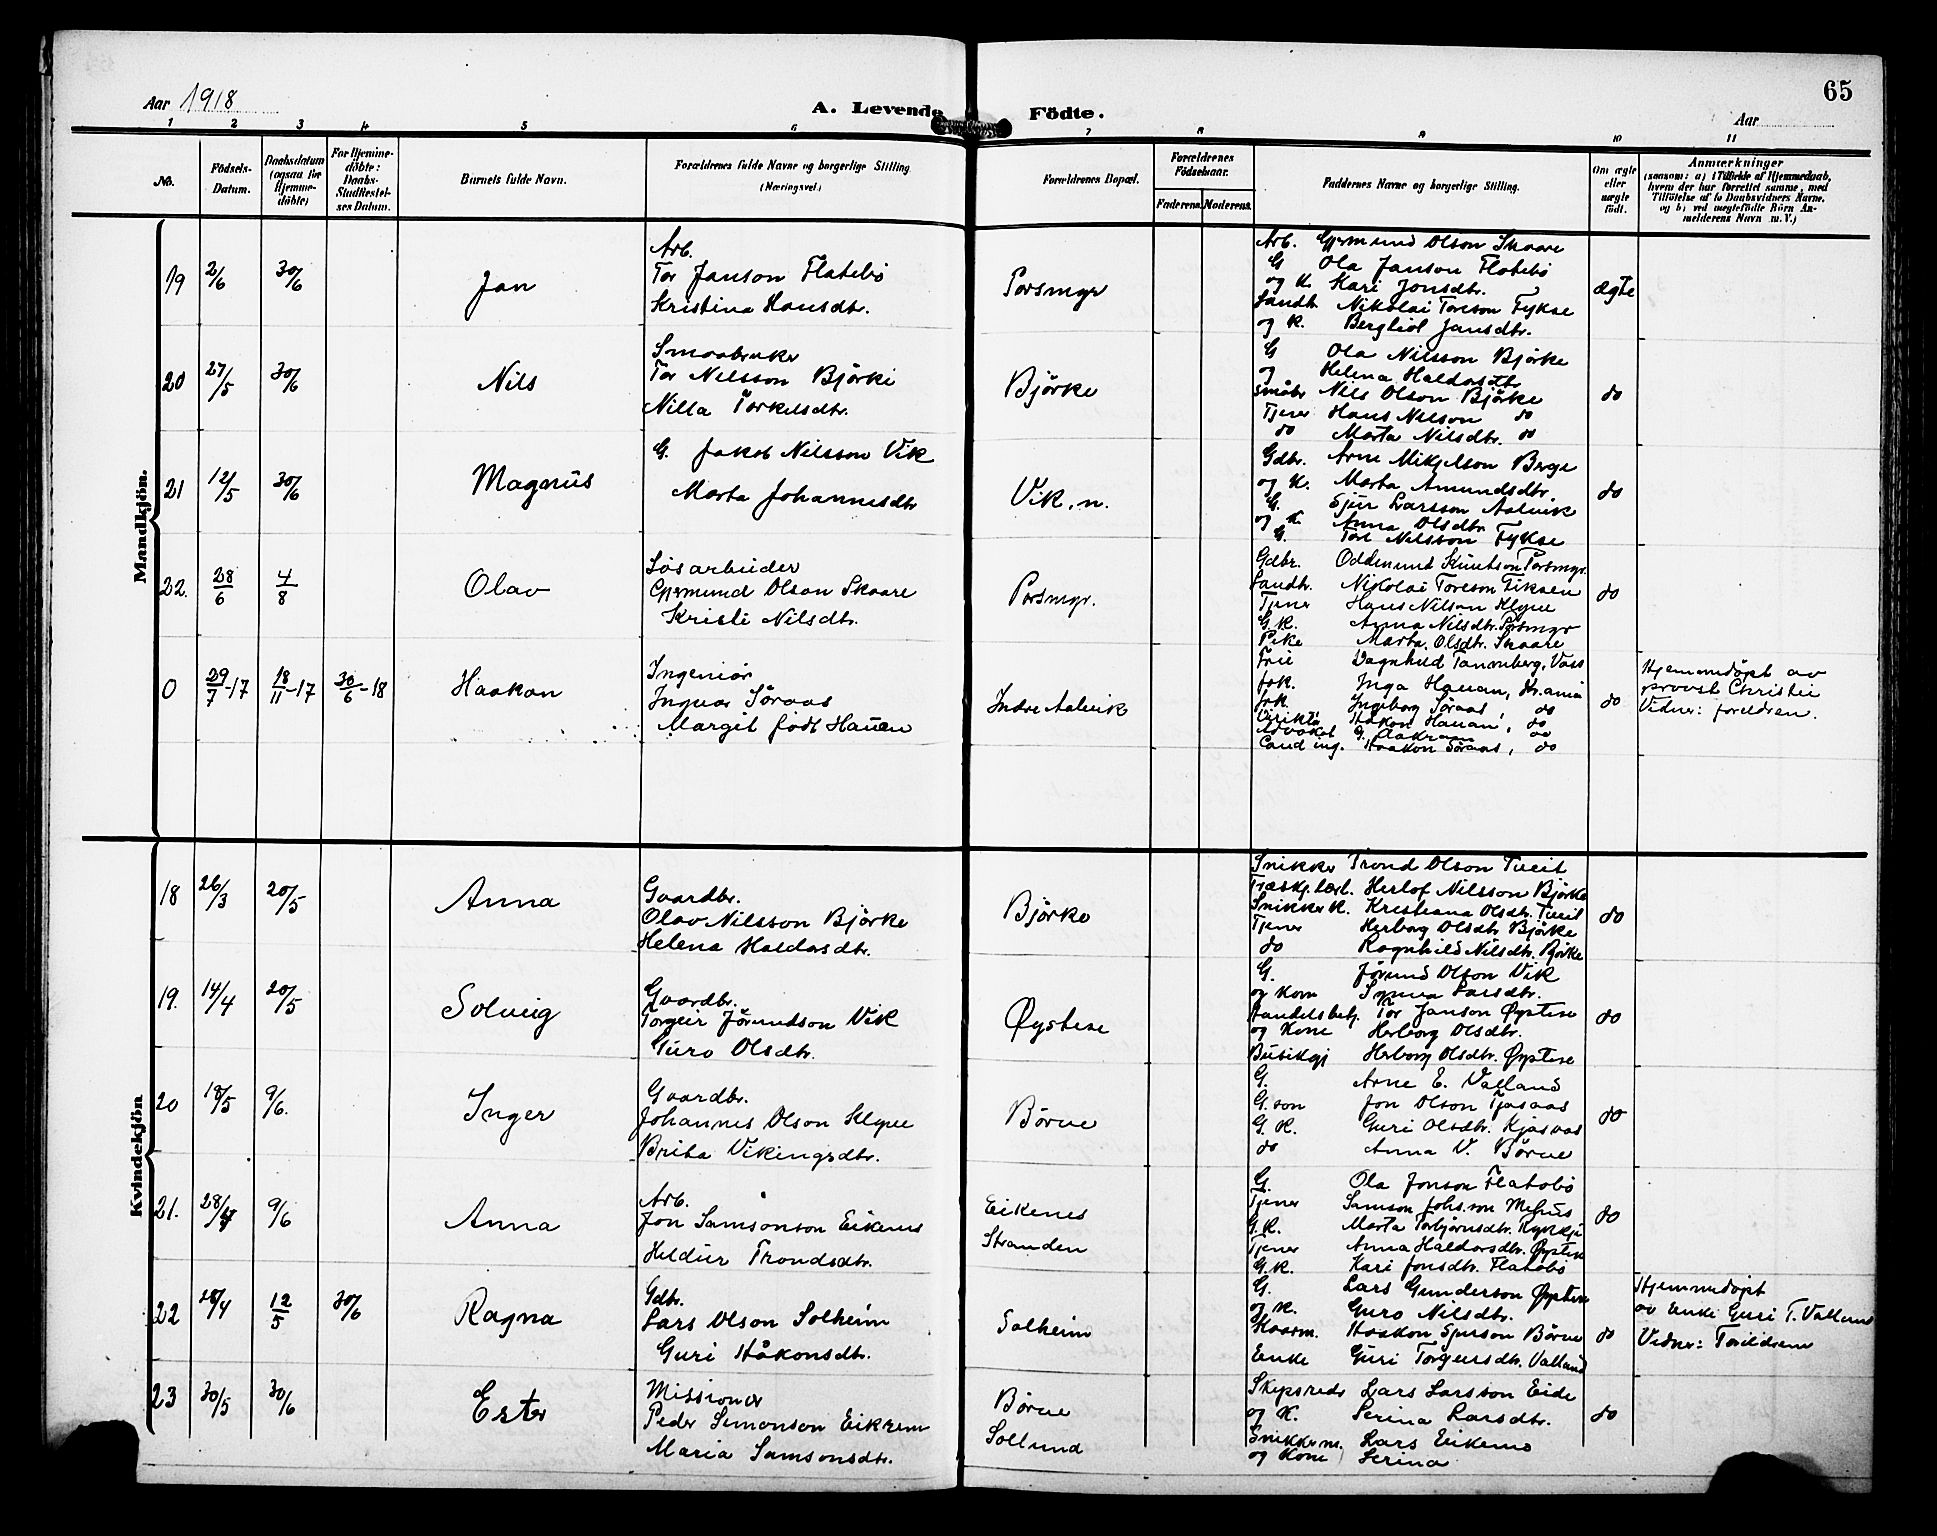 65
Aar 1918
A. Levende Födte.
Aar
1 2 3 4 5 6 7 8 9 10 11
No.
Födsels-Datum.
Daabsdatum (ogsaa for Hjemme-döbte)
For Hjemme-döbte: Daabs-Stadfæstel-ses Datum.
Barnets fulde Navn.
Forældrenes fulde Navne og borgerlige Stilling (Næringsvei.)
Forældrenes Bopæl.
Forældrenes Födselsaar.
Faderens. Moderens.
Faddernes Navne og borgerlige Stilling.
Om ægte eller uægte födt.
Anmærkninger
(saasom: a) i Tilfælde af Hjemmedaab,
hvem der har forrettet samme, med
Tilföielse af to Daabsvidners Navne,
og b) ved uægtefödte Börn An-
melderens Navn m. V.)
Mandkjön.
19 2/6 30/6 Jan
Arb.
Tor Janson Flatebö
Kristina Hansdtr.
Porsmyr
Arb. Gjermund Olson Skaare
G Ola Janson Flatebö
og K. Kari Jonsdtr.
Landh. Nikolai Toreson Fykse
og K. Bergliot Jansdtr.
ægte
20 27/5 30/6 Nils
Smaabruker
Tor Nilsson Björke
Nilla Torkelsdtr.
Björke
G Ola Nilsson Björke
og Helena Haldorsdtr
Småbr Nils Olson Björke
Tjener Hans Nilson do
do Marta Nilsdtr. do
do
21 12/5 30/6 Magnus
G. Jakob Nilsson Vik
Marta Johannesdtr
Vik, n.
Gdbr. Arne Mikjelson Berge
og K. Marta Amundsdtr.
G. Sjur Larsson Aalvik
og K. Anna Olsdtr
G. Tore Nilsson Fykse
do
22. 28/6 4/8 Olav
Lösarbeider
Gjermund Olson Skaare
Kristi Nilsdtr.
Porsmyr.
Gdbr. Oddmund Knutson Porsmyr.
Landh. Nikolai Toreson Fiksen
Tjener Hans Nilson Klyve
G.K. Anna Nilsdtr. Porsmyr
Pike Marta Olsdtr. Skaare
do
0 29/7-17 18/11-17 30/6-18 Haakon
Ingeniör
Ingvar Söraas
Margit född Hauan
Indre Aalvik
Frk. Inga Hauan, Kr.ania
frk. Ingeborg Söraas, do
Håkon Hauan, do
Advokat G. Aakraan do
Cand ing. Haakon Söraas, do
do
Hjemmedöpt av
provst Christie
Vidner: foreldren.
Kvindekjön
18 26/3 20/5 Anna
Gaardbr.
Olav Nilsson Björke
Helena Haldorsdtr.
Björke
Snikker Trond Olson Tveit
Træskj.lærl. Herlof Nilsson Björke
Snikker K. Kristiana Olsdtr. Tveit
Tjener Herborg Olsdtr Björke
do Ragnhild Nilsdtr. Björke
do
19. 14/4 20/5 Solveig
Gaardbr.
Torgeir Jörundson Vik
Guro Olsdtr.
Øystese
G. Jörund Olson Vik
og Kone Synva Larsdtr.
Handelsbetj. Tor Janson Øystese
og Kone Herborg Olsdtr.
Herborg Olsdtr. Øystese
do
20 18/5 9/6. Inger
Gaardbr.
Johannes Olson Klyve
Brita Vikingsdtr.
Börve
G. Arne E. Valland
G. son Jon Olson Kjosaas
G. K. Guri Olsdtr. Kjosaas
do Anna V. Börve
do
21. 28/4 9/6 Anna
Arb.
Jon Samsonson Eikenes
Heldur Trondsdtr.
Eikenes
Stranden
G. Ola Jonson Flatebö
Tjener Samson Johs.son Mehus
G.K. Marta Torbjörnsdtr. Kyrkje
Tjener Anna Haldorsdtr. Øystese
G.K. Kari Jonsdtr. Flatebö
do
22 28/4 12/5 30/6 Ragna
Gdbr.
Lars Olson Solheim
Guri Håkonsdtr.
Solheim
G. Lars Gunderson Øystese
og K. Guro Nilsdtr.
Kaarm. Haakon Sjurson Börve
Enke Guri Torgeirsdtr. Valland
do
Hjemmedöpt
av Enke Guri T. Valland
Vidner: Forældrene
23 30/5 30/6 Ester
Missionær
Peder Simonson Eikrem
Maria Samsonsdtr.
Börve
Solund
Skipsreder Lars Larsson Eide
og K. Serina Larsdtr.
Snikkerm. Lars Eikemo
og Kone Serina
do